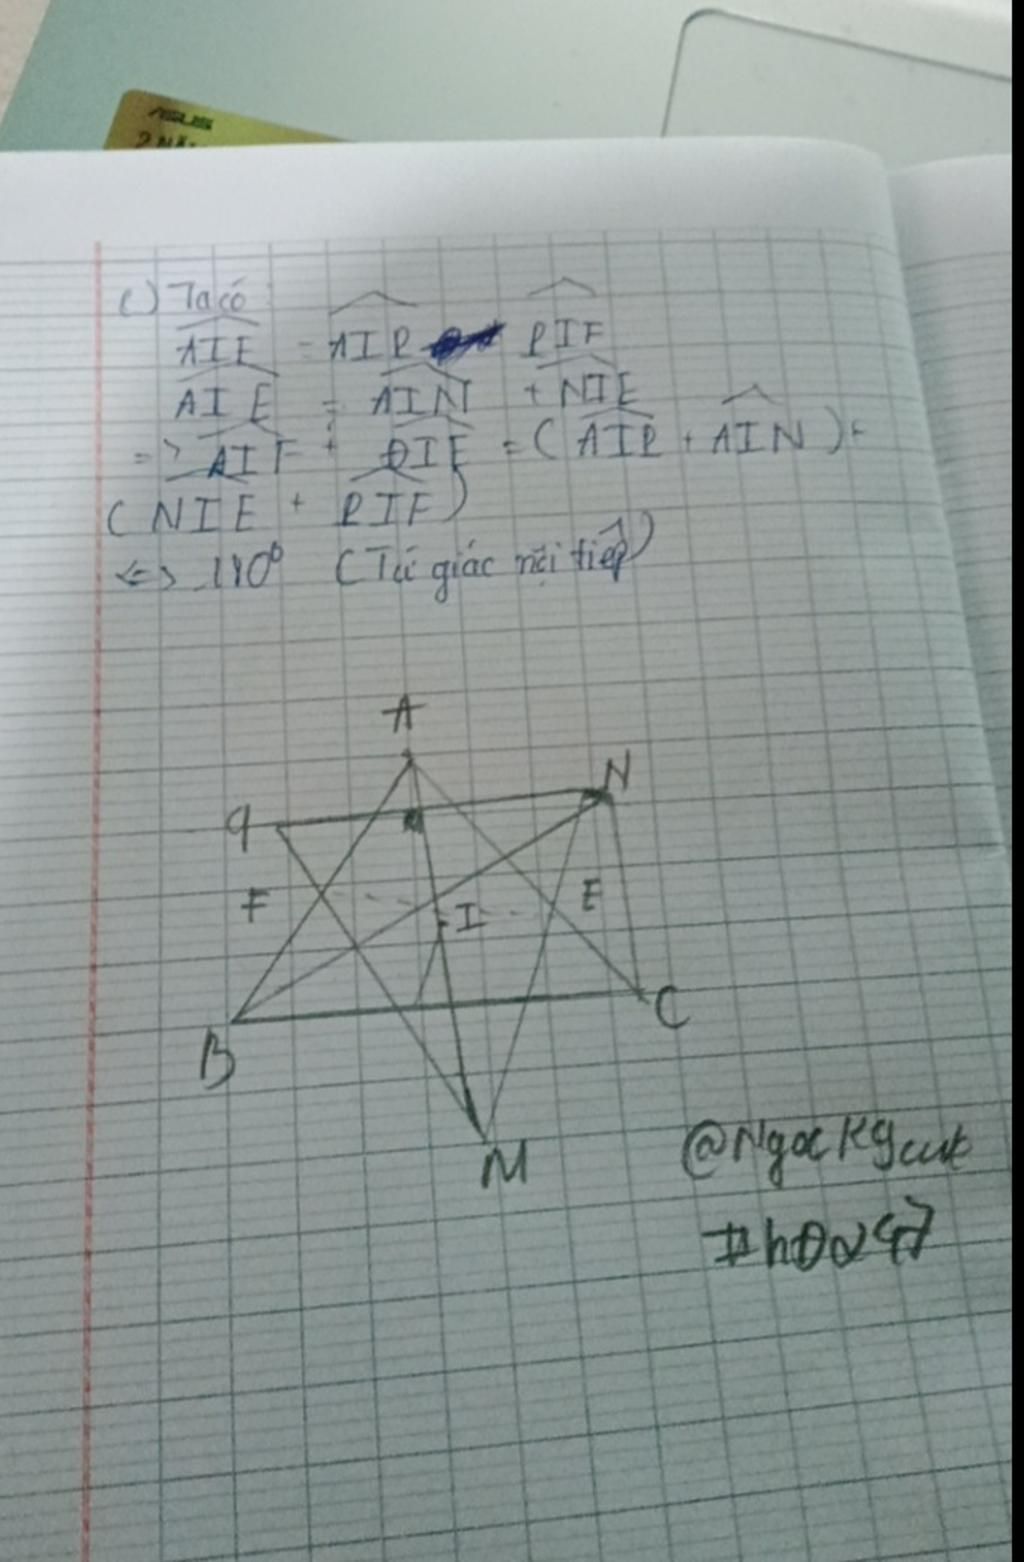 ASUS
c) Ta có
AIF = AIP PIF
AIE = AIN + NIE
=> AIF + AIE = (AIP + AIN) +
(NIE + PIF)
<=> 180⁰ (Tứ giác nội tiếp)
A
N
q
F
E
I
C
B
M
@Ngoc
#h0247